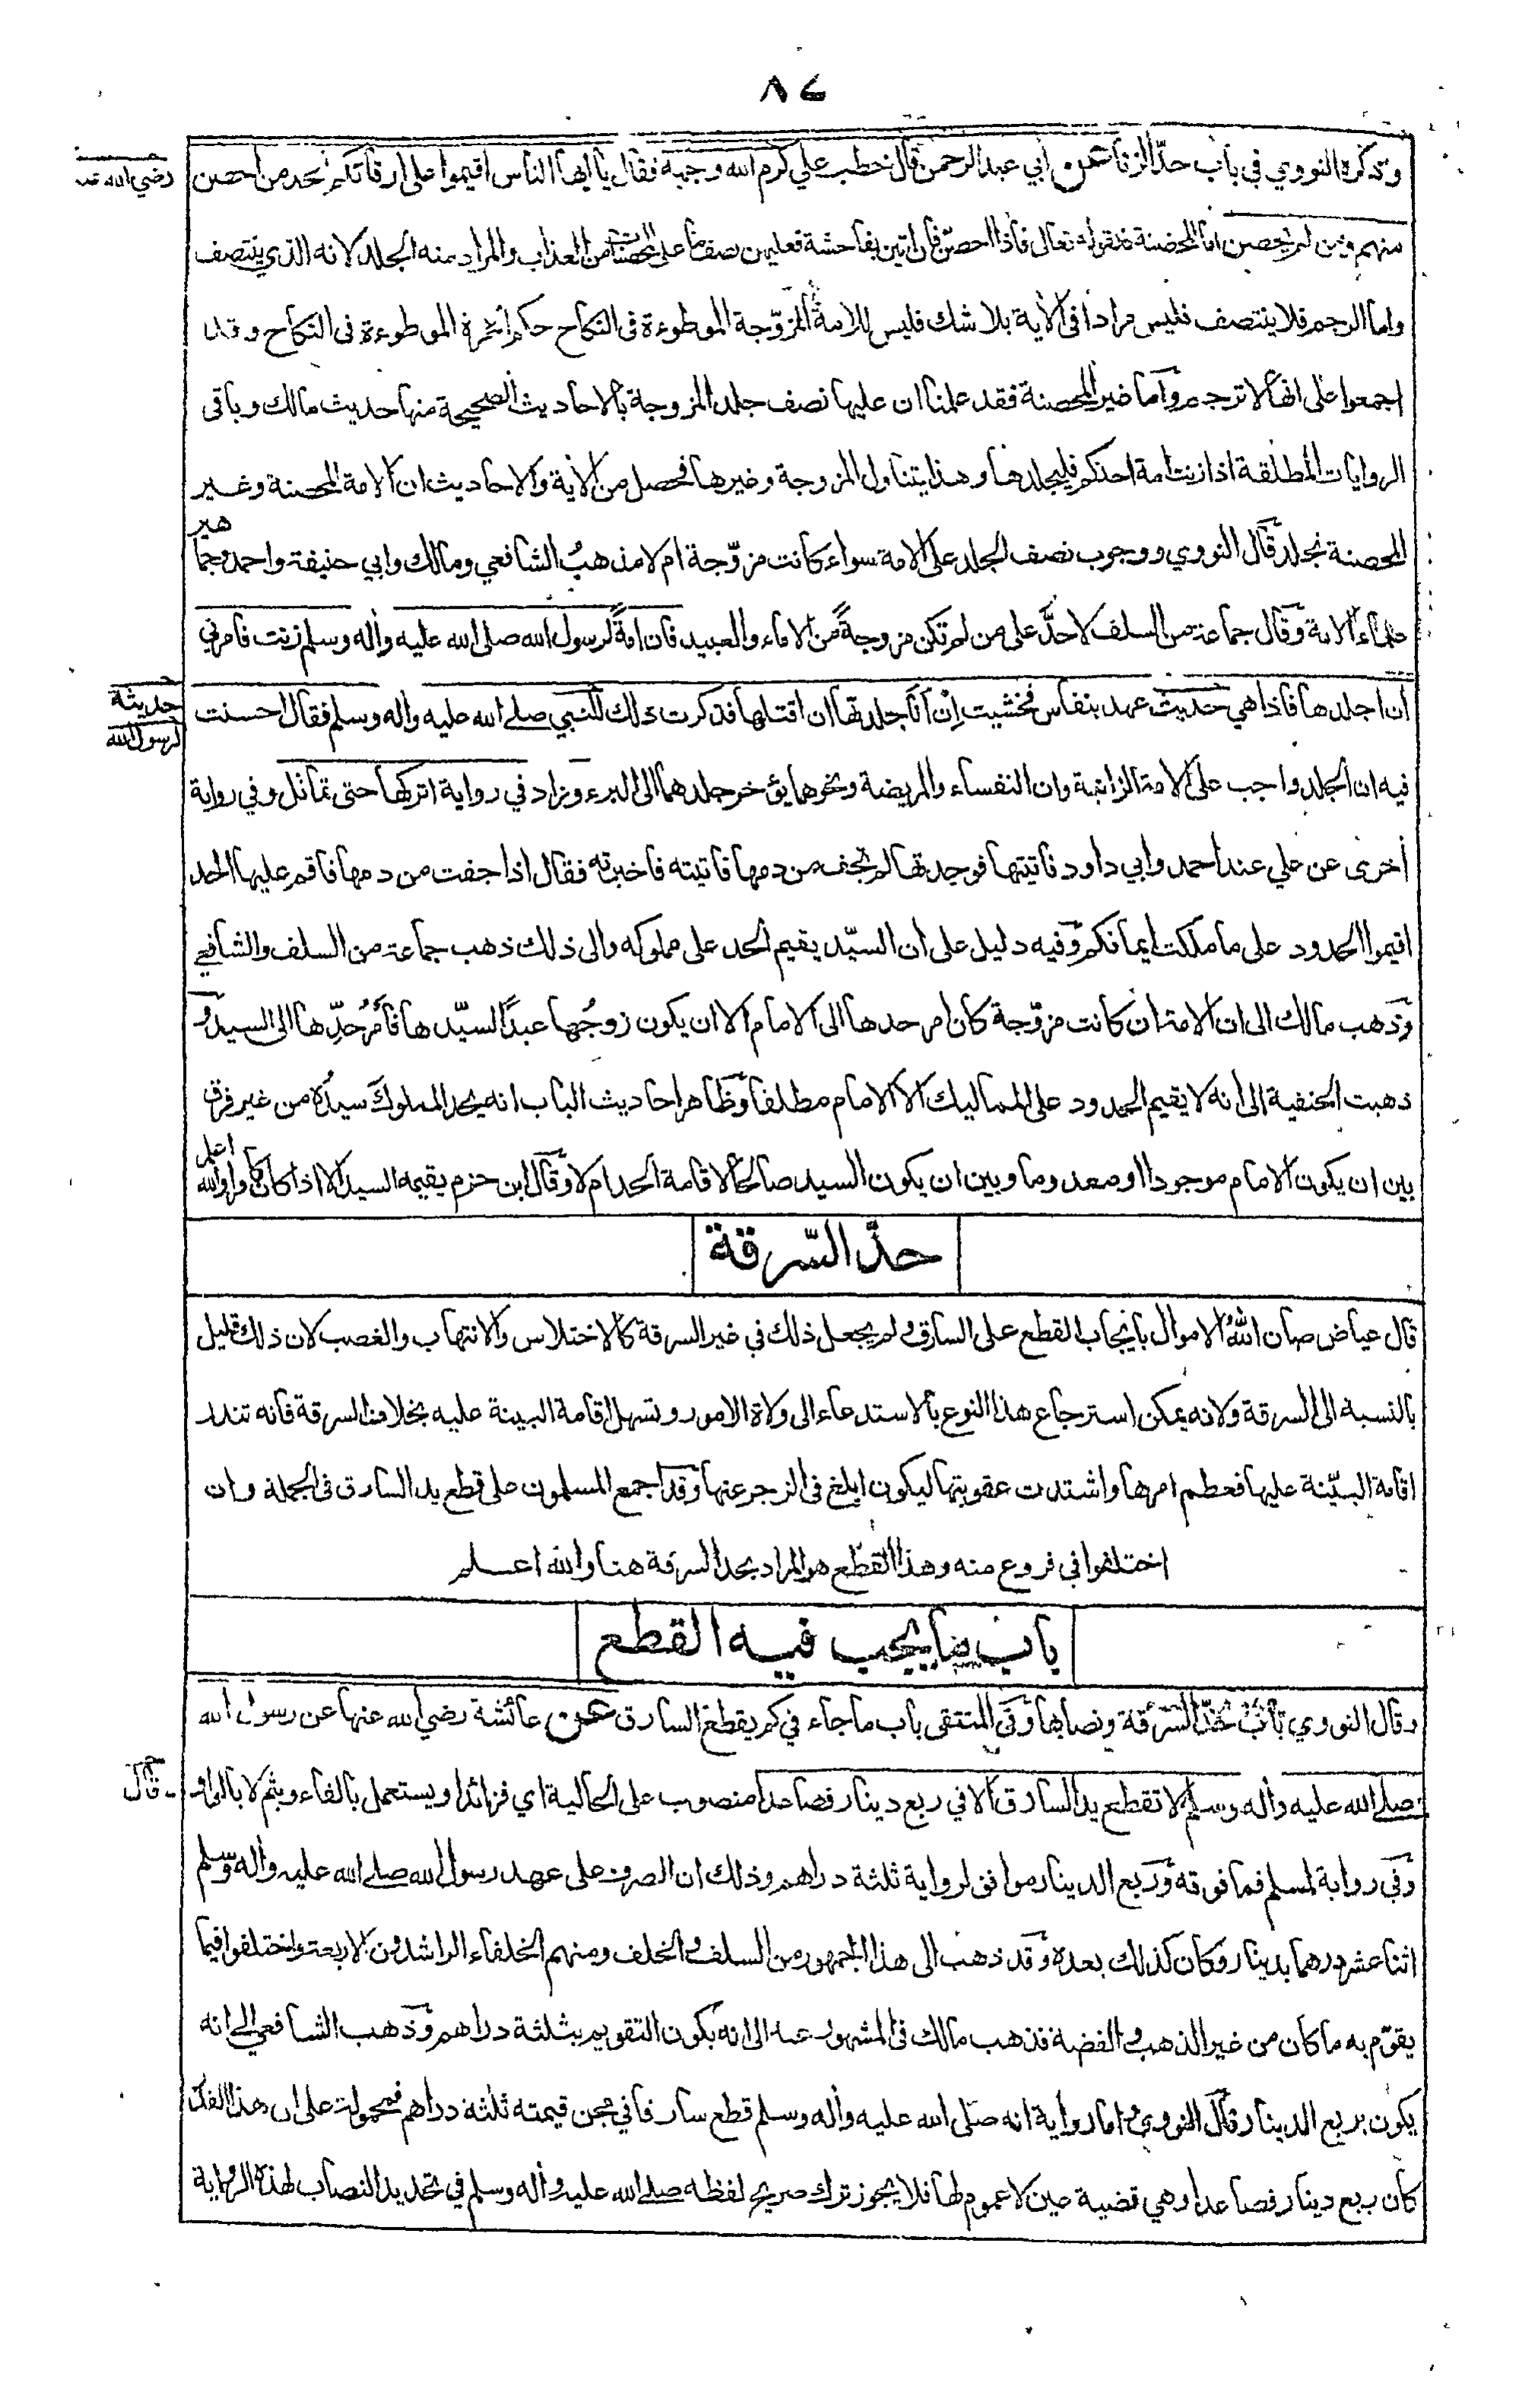 ٨٤
وذكره النووي في باب حد الزنا عن أبي عبد الرحمن قال خطب علي كرم الله وجهه فقال يا أيها الناس أقيموا على أرقائكم الحد من أحصن
رضي الله عنه
منهم ومن لم يحصن أما المحصنة فلقوله تعالى فاذا احصن فان اتين بفاحشة فعليهن نصف ما على المحصنات من العذاب والمراد منه الجلد لانه الذي ينتصف
واما الرجم فلا ينتصف فليس مرادا في الآية بلا شك فليس للامة المزوّجة الموطوءة في النكاح حكم الحرة الموطوءة في النكاح وقد
اجمعوا على انها لا ترجم وأما غير المحصنة فقد علمنا ان عليها نصف جلد المزوجة بالاحاديث الصحيحة منها حديث مالك وباقى
الروايات المطلقة اذا زنت امة احدكم فليجلدها وهذا يتناول المزوجة وغيرها فحصل من الآية والاحاديث ان الامة المحصنة وغير
المحصنة تجلد قال النووي ووجوب نصف الجلد على الامة سواء كانت مزوّجة ام لا مذهبُ الشافعي ومالك وابي حنيفة واحمد وجماهير
علماء الامة وقال جماعة من السلف لا حدَّ على من لم تكن مزوجةً من الاماء والعبيد فان امةً لرسول الله صلى الله عليه وأله وسلم زنت فامرني
ان اجلدها فاذا هي حديث عهد بنفاس فخشيت إن أنا جلدتها ان اقتلها فذكرت ذلك للنبي صلى الله عليه واله وسلم فقال احسنت
حديثة
لرسول الله
فيه ان الجلد واجب على الامة الزانية وان النفساء والمريضة ونحوهما يؤخر جلدهما الى البرء وزاد في رواية اتركها حتى تماثل وفي رواية
أخرى عن علي عند احمد وابي داود فاتيتها فوجدتها لم تجف من دمها فاتيته فاخبرته فقال اذا جفت من دمها فاقم عليها الحد
اقيموا الحدود على ما ملكت ايمانكم وفيه دليل على أن السيّد يقيم الحد على مملوكه والى ذلك ذهب جماعة من السلف والشافعي
وذهب مالك الى ان الامة ان كانت مزوّجة كان امر حدها الى الامام الا ان يكون زوجُها عبدًا لسيّدها فأمرُ حدِّها الى السيد و
ذهبت الحنفية الى انه لا يقيم الحدود على المماليك الا الامام مطلقا وظاهر احاديث الباب انه يحد المملوكَ سيدُه من غير فرق
بين ان يكون الامام موجودا او معدوما وبين ان يكون السيد صالحا لاقامة الحد ام لا وقال ابن حزم يقيمه السيد الا اذا كان كافرا والله اعلم
حدّ السّرقة
قال عياض صان اللهُ الاموال بايجاب القطع على السارق ولم يجعل ذلك في غير السرقة كالاختلاس والانتهاب والغصب لان ذلك قليل
بالنسبة الى السرقة ولانه يمكن استرجاع هذا النوع بالاستدعاء الى ولاة الامور وتسهل اقامة البينة عليه بخلاف السرقة فانه تندر
اقامة البيّنة عليها فعظم امرها واشتدت عقوبتها ليكون ابلغ في الزجر عنها وقد اجمع المسلمون على قطع يد السارق في الجملة وان
اختلفوا في فروع منه وهذا القطع هو المراد بحد السرقة هنا والله اعلم
باب ما يجب فيه القطع
وقال النووي بابُ حدّ السرقة ونصابها وفي المنتقى باب ما جاء في كم يقطع السارق عن عائشة رضي الله عنها عن رسول الله
صلى الله عليه وأله وسلم لا تقطع يد السارق الا في ربع دينار فصاعدا منصوب على الحالية اي فزائدا ويستعمل بالفاء وبثم لا بالواو
قال
وفي رواية لمسلم فما فوقه وربع الدينار موافق لرواية ثلثة دراهم وذلك ان الصرف على عهد رسول الله صلى الله عليه وأله وسلم
اثنا عشر درهما بدينار وكان كذلك بعده وقد ذهب الى هذا الجمهور من السلف والخلف ومنهم الخلفاء الراشدون الاربعة واختلفوا فيما
يقوّم به ما كان من غير الذهب والفضة فذهب مالك في المشهور عنه الى انه يكون التقويم بثلثة دراهم وذهب الشافعي الى انه
يكون بربع الدينار قال النووي واما رواية انه صلى الله عليه وأله وسلم قطع سارقا في مجن قيمته ثلثة دراهم فمحمولة على ان هذا القدر
كان ربع دينار فصاعدا وهي قضية عين لا عموم لها فلا يجوز ترك صريح لفظه صلى الله عليه وأله وسلم في تحديد النصاب لهذه الرواية